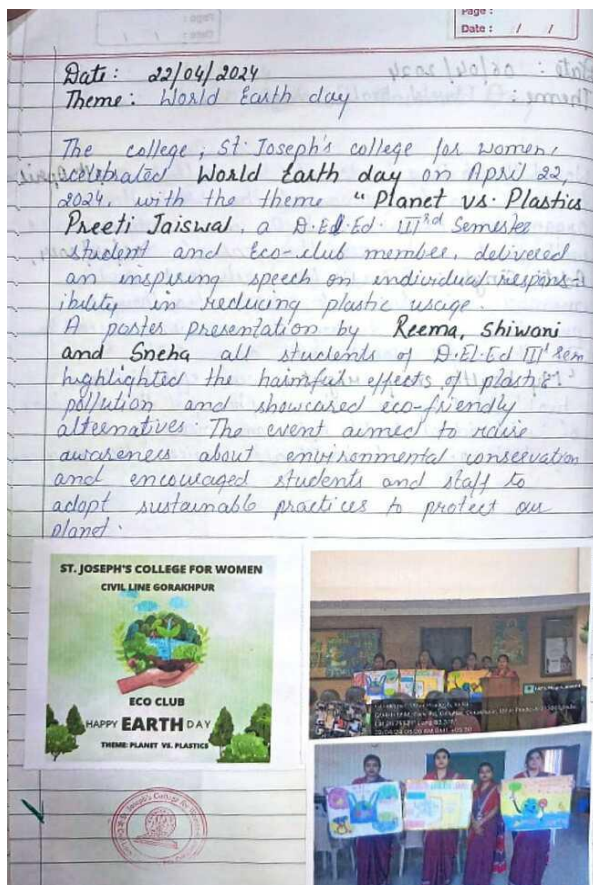 Page :
Date : / /
Date : 22/04/2024
Theme : World Earth day
The college, St. Joseph's college for women,
celebrated World Earth day on April 22,
2024, with the theme "Planet vs. Plastics
Preeti Jaiswal, a D.El.Ed. IIIrd Semester
student and Eco-club member, delivered
an inspiring speech on individual respons-
ibility in reducing plastic usage.
A poster presentation by Reema, Shiwani
and Sneha all students of D.El.Ed IIIrd Sem
highlighted the harmful effects of plastic
pollution and showcased eco-friendly
alternatives. The event aimed to raise
awareness about environmental conservation
and encouraged students and staff to
adopt sustainable practices to protect our
planet.
ST. JOSEPH'S COLLEGE FOR WOMEN
CIVIL LINE GORAKHPUR
ECO CLUB
HAPPY EARTH DAY
THEME: PLANET VS. PLASTICS
Joseph's College for Women